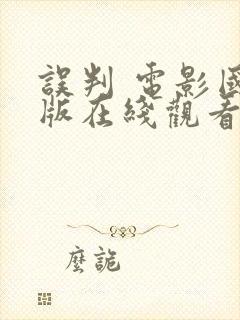 誤判 電影國
版在綫觀看
麼詭